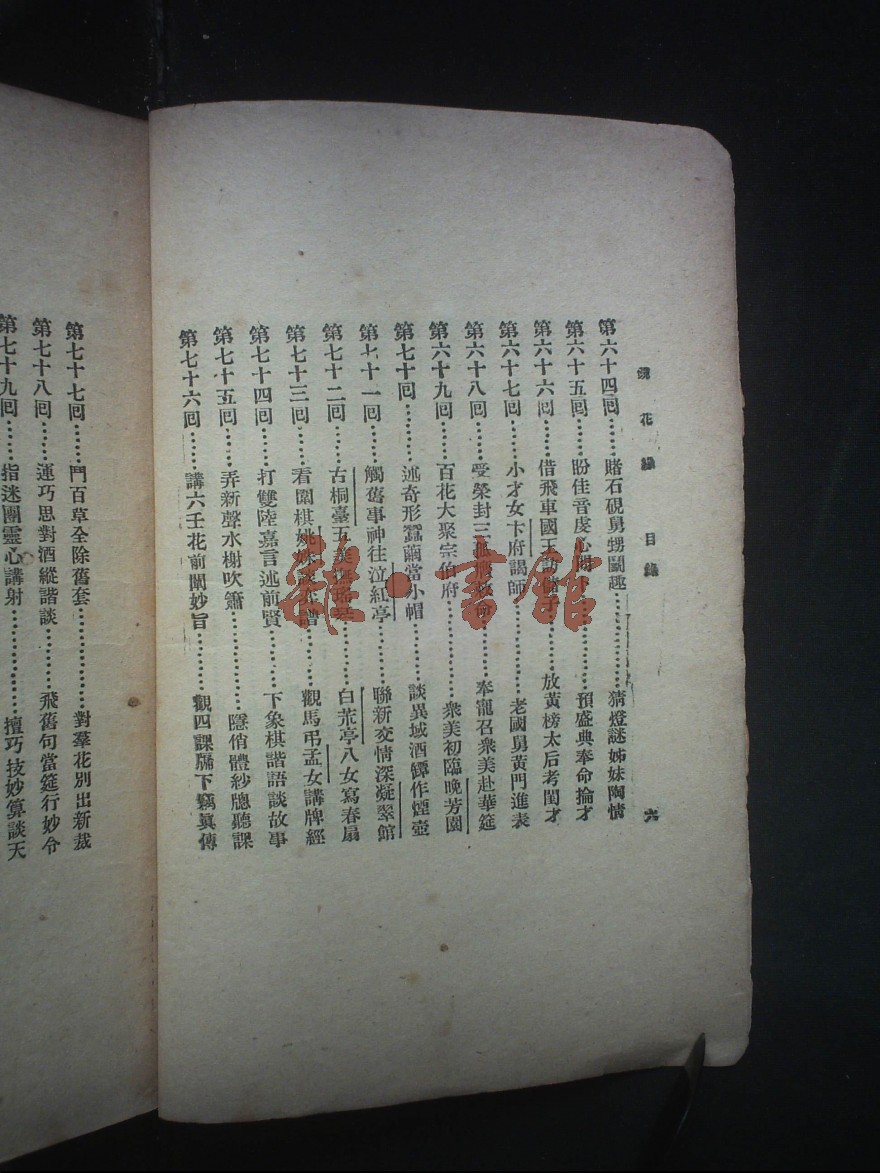 鏡花緣 目錄 六
第六十四回……賭石硯舅甥鬭趣……猜燈謎姊妹陶情
第六十五回……盼佳音虔心問卜……預盛典奉命掄才
第六十六回……借飛車國王訪儲子……放黃榜太后考閨才
第六十七回……小才女卞府謁師……老國舅黃門進表
第六十八回……受榮封三孤……奉寵召衆美赴華筵
第六十九回……百花大聚宗伯府……衆美初臨晚芳園
第七十回……述奇形蠶繭當小帽……談異域酒罈作煙壺
第七十一回……觸舊事神往泣紅亭……聯新交情深凝翠館
第七十二回……古桐臺五美撫瑤琴……白茮亭八女寫春扇
第七十三回……看圍棋姚姝談弈譜……觀馬弔孟女講牌經
第七十四回……打雙陸嘉言述前賢……下象棋諧語談故事
第七十五回……弄新聲水榭吹簫……隱俏體紗牕聽課
第七十六回……講六壬花前闡妙旨……觀四課牖下竊眞傳
第七十七回……鬥百草全除舊套……對羣花別出新裁
第七十八回……運巧思對酒縱諧談……飛舊句當筵行妙令
第七十九回……指迷團靈心講射……擅巧技妙算談天
雜·書館